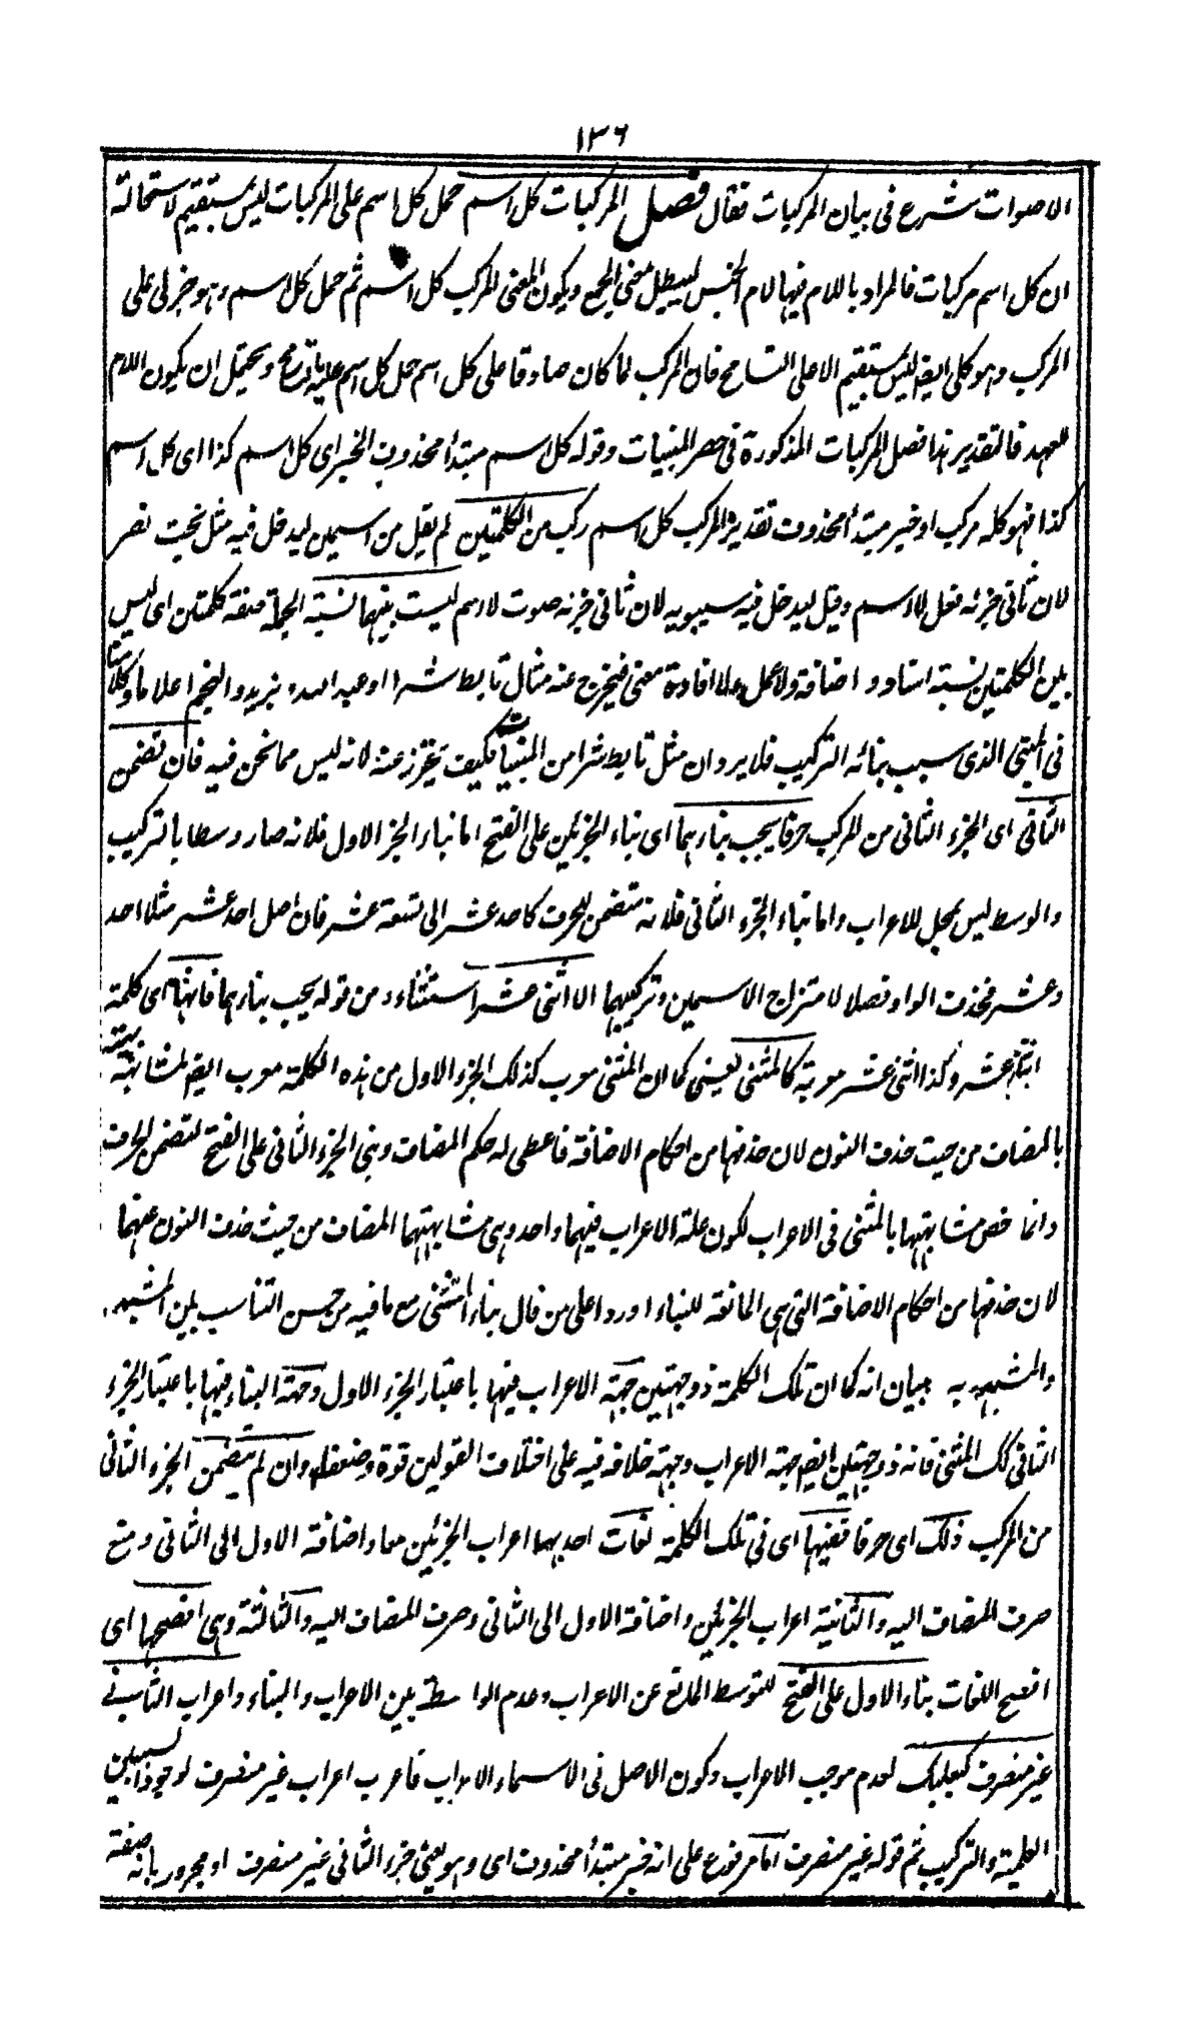 ١٣٦
الاصوات شرع فی بیان المرکبات فقال فصل المرکبات کل اسم حمل کل اسم علی المرکبات لیس بمستقیم لاستحالة
ان کل اسم مرکبات فالمراد باللام فیها لام الجنس لیبطل معنی الجمع ویکون المعنی المرکب کل اسم ثم حمل کل اسم وهو جزئی علی
المرکب وهو کلی ایضا لیس بمستقیم الا علی التسامح فان المرکب لما کان صادقا علی کل اسم حمل کل اسم علیه ویحتمل ان یکون اللام
للعهد فالتقدیر هذا فصل المرکبات المذکورة فی حصر المبنیات وقوله کل اسم مبتدأ محذوف الخبر ای کل اسم کذا ای کل اسم
کذا فهو کله مرکب او خبر مبتدأ محذوف تقدیره المرکب کل اسم رکب من الکلمتین لم یقل من اسمین لیدخل فیه مثل بخت نصر
لان ثانی جزئه فعل لا اسم وقیل لیدخل فیه سیبویه لان ثانی جزئه صوت لا اسم لیست بینهما نسبة الجملة صفة کلمتین ای لیس
بین الکلمتین نسبة اسناد و اضافة ولا عمل ولا افادة معنی فیخرج عنه مثال تابط شرا او عبد الله و بزید والنجم اعلاما وکلامنا
فی المبنی الذی سبب بنائه الترکیب فلا یرد ان مثل تابط شرا من المبنیات فکیف یحترز عنه لانه لیس مما نحن فیه فان تضمن
الثانی ای الجزء الثانی من المرکب حرفا یجب بناءهما ای بناء الجزئین علی الفتح اما بناء الجزء الاول فلانه صار وسطا بالترکیب
والوسط لیس بمحل للاعراب واما بناء الجزء الثانی فلانه متضمن للحرف کاحد عشر الی تسعة عشر فان اصل احد عشر مثلا احد
وعشر فحذف الواو قصدا لامتزاج الاسمین وترکیبهما الا اثنی عشر استثناء من قوله یجب بناءهما فانها ای کلمة
اثنی عشر وکذا اثنتی عشر معربة کالمثنی یعنی کما ان المثنی معرب کذلک الجزء الاول من هذه الکلمة معرب ایضا لمشابهته
بالمضاف من حیث حذف النون لان حذفها من احکام الاضافة فاعطی له حکم المضاف وبنی الجزء الثانی علی الفتح لتضمن الحرف
وانما خص مشابهتها بالمثنی فی الاعراب لکون علة الاعراب فیهما واحد وهی مشابهتهما المضاف من حیث حذف النون عنهما
لان حذفها من احکام الاضافة التی هی المانعة للبناء او ردا علی من قال بناء المثنی مع ما فیه من حسن التناسب بین المشبه
والمشبه به ببیان انه کما ان تلک الکلمة ذو جهتین جهة الاعراب فیها باعتبار الجزء الاول وجهة البناء فیها باعتبار الجزء
الثانی کک المثنی فانه ذو جهتین ایضا جهة الاعراب وجهة خلافه فیه علی اختلاف القولین قوة وضعفا وان لم یتضمن الجزء الثانی
من المرکب ذلک ای حرفا ففیها ای فی تلک الکلمة لغات احدیهما اعراب الجزئین معا واضافة الاول الی الثانی ومنع
صرف المضاف الیه والثانیة اعراب الجزئین واضافة الاول الی الثانی وصرف المضاف الیه والثالثة وهی افصحها ای
افصح اللغات بناء الاول علی الفتح للتوسط المانع عن الاعراب وعدم الواسطة بین الاعراب والبناء واعراب الثانی
غیر منصرف کبعلبک لعدم موجب الاعراب وکون الاصل فی الاسماء الاعراب فاعرب اعراب غیر منصرف لوجود السببین
العلمیة والترکیب ثم قوله غیر منصرف اما مرفوع علی انه خبر مبتدأ محذوف ای وهو یعنی جزء الثانی غیر منصرف او مجرور بانه صفة